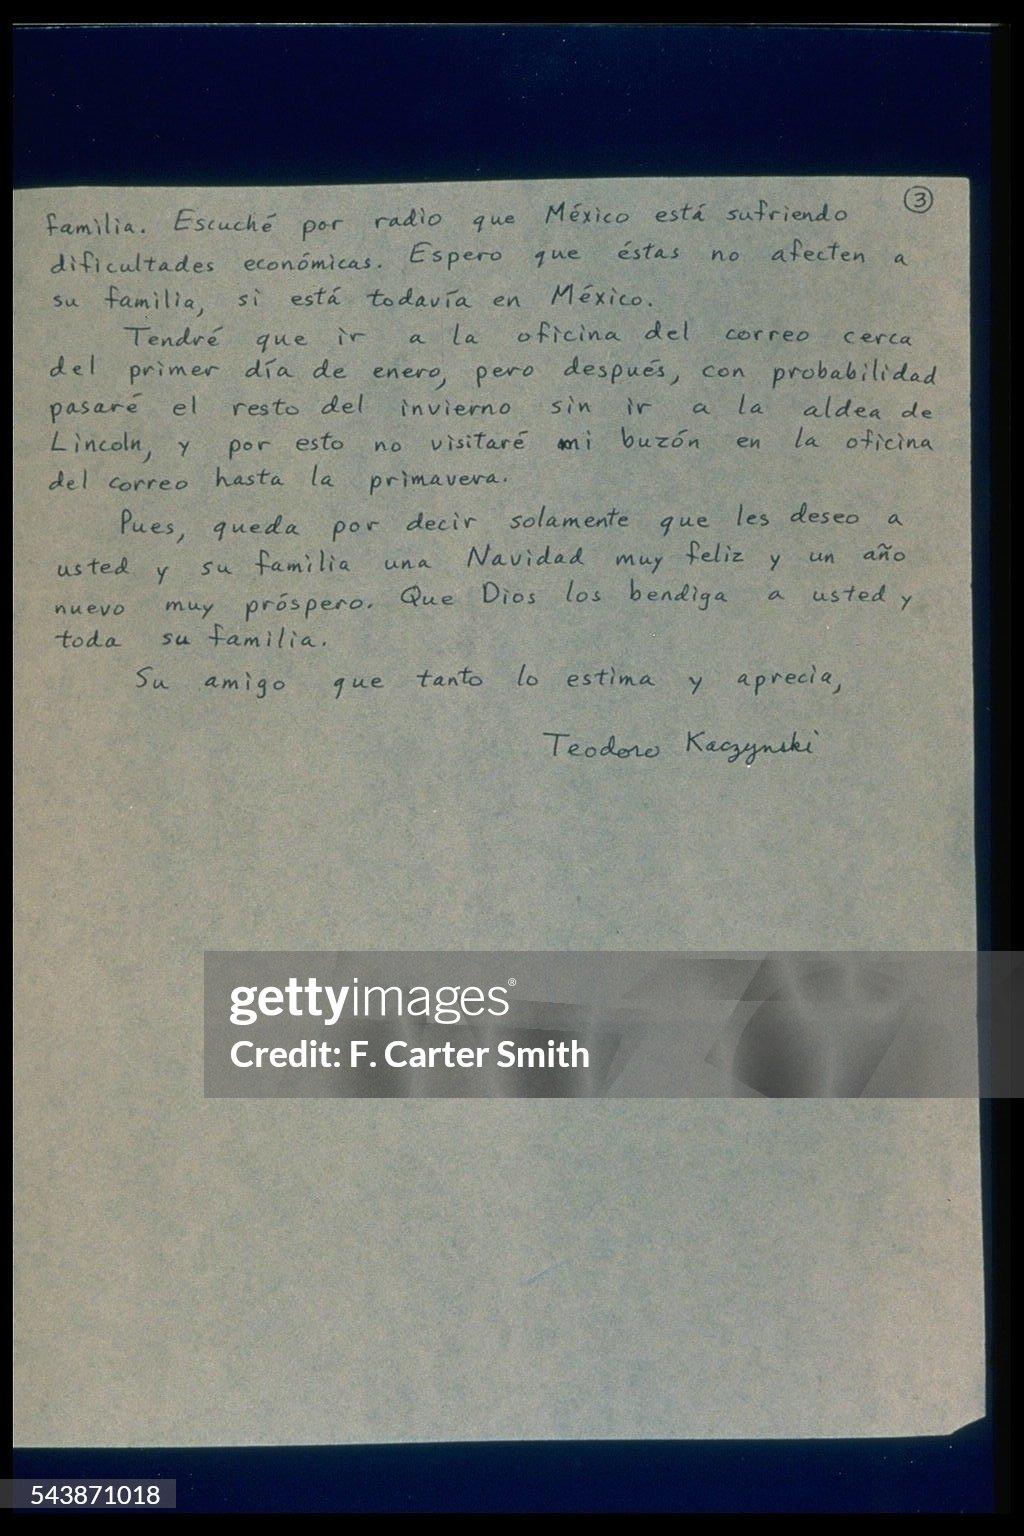 ③
familia. Escuché por radio que México está sufriendo
dificultades económicas. Espero que éstas no afecten a
su familia, si está todavía en México.
Tendré que ir a la oficina del correo cerca
del primer día de enero, pero después, con probabilidad
pasaré el resto del invierno sin ir a la aldea de
Lincoln, y por esto no visitaré mi buzón en la oficina
del correo hasta la primavera.
Pues, queda por decir solamente que les deseo a
usted y su familia una Navidad muy feliz y un año
nuevo muy próspero. Que Dios los bendiga a usted y
toda su familia.
Su amigo que tanto lo estima y aprecia,
Teodoro Kaczynski
gettyimages®
Credit: F. Carter Smith
543871018